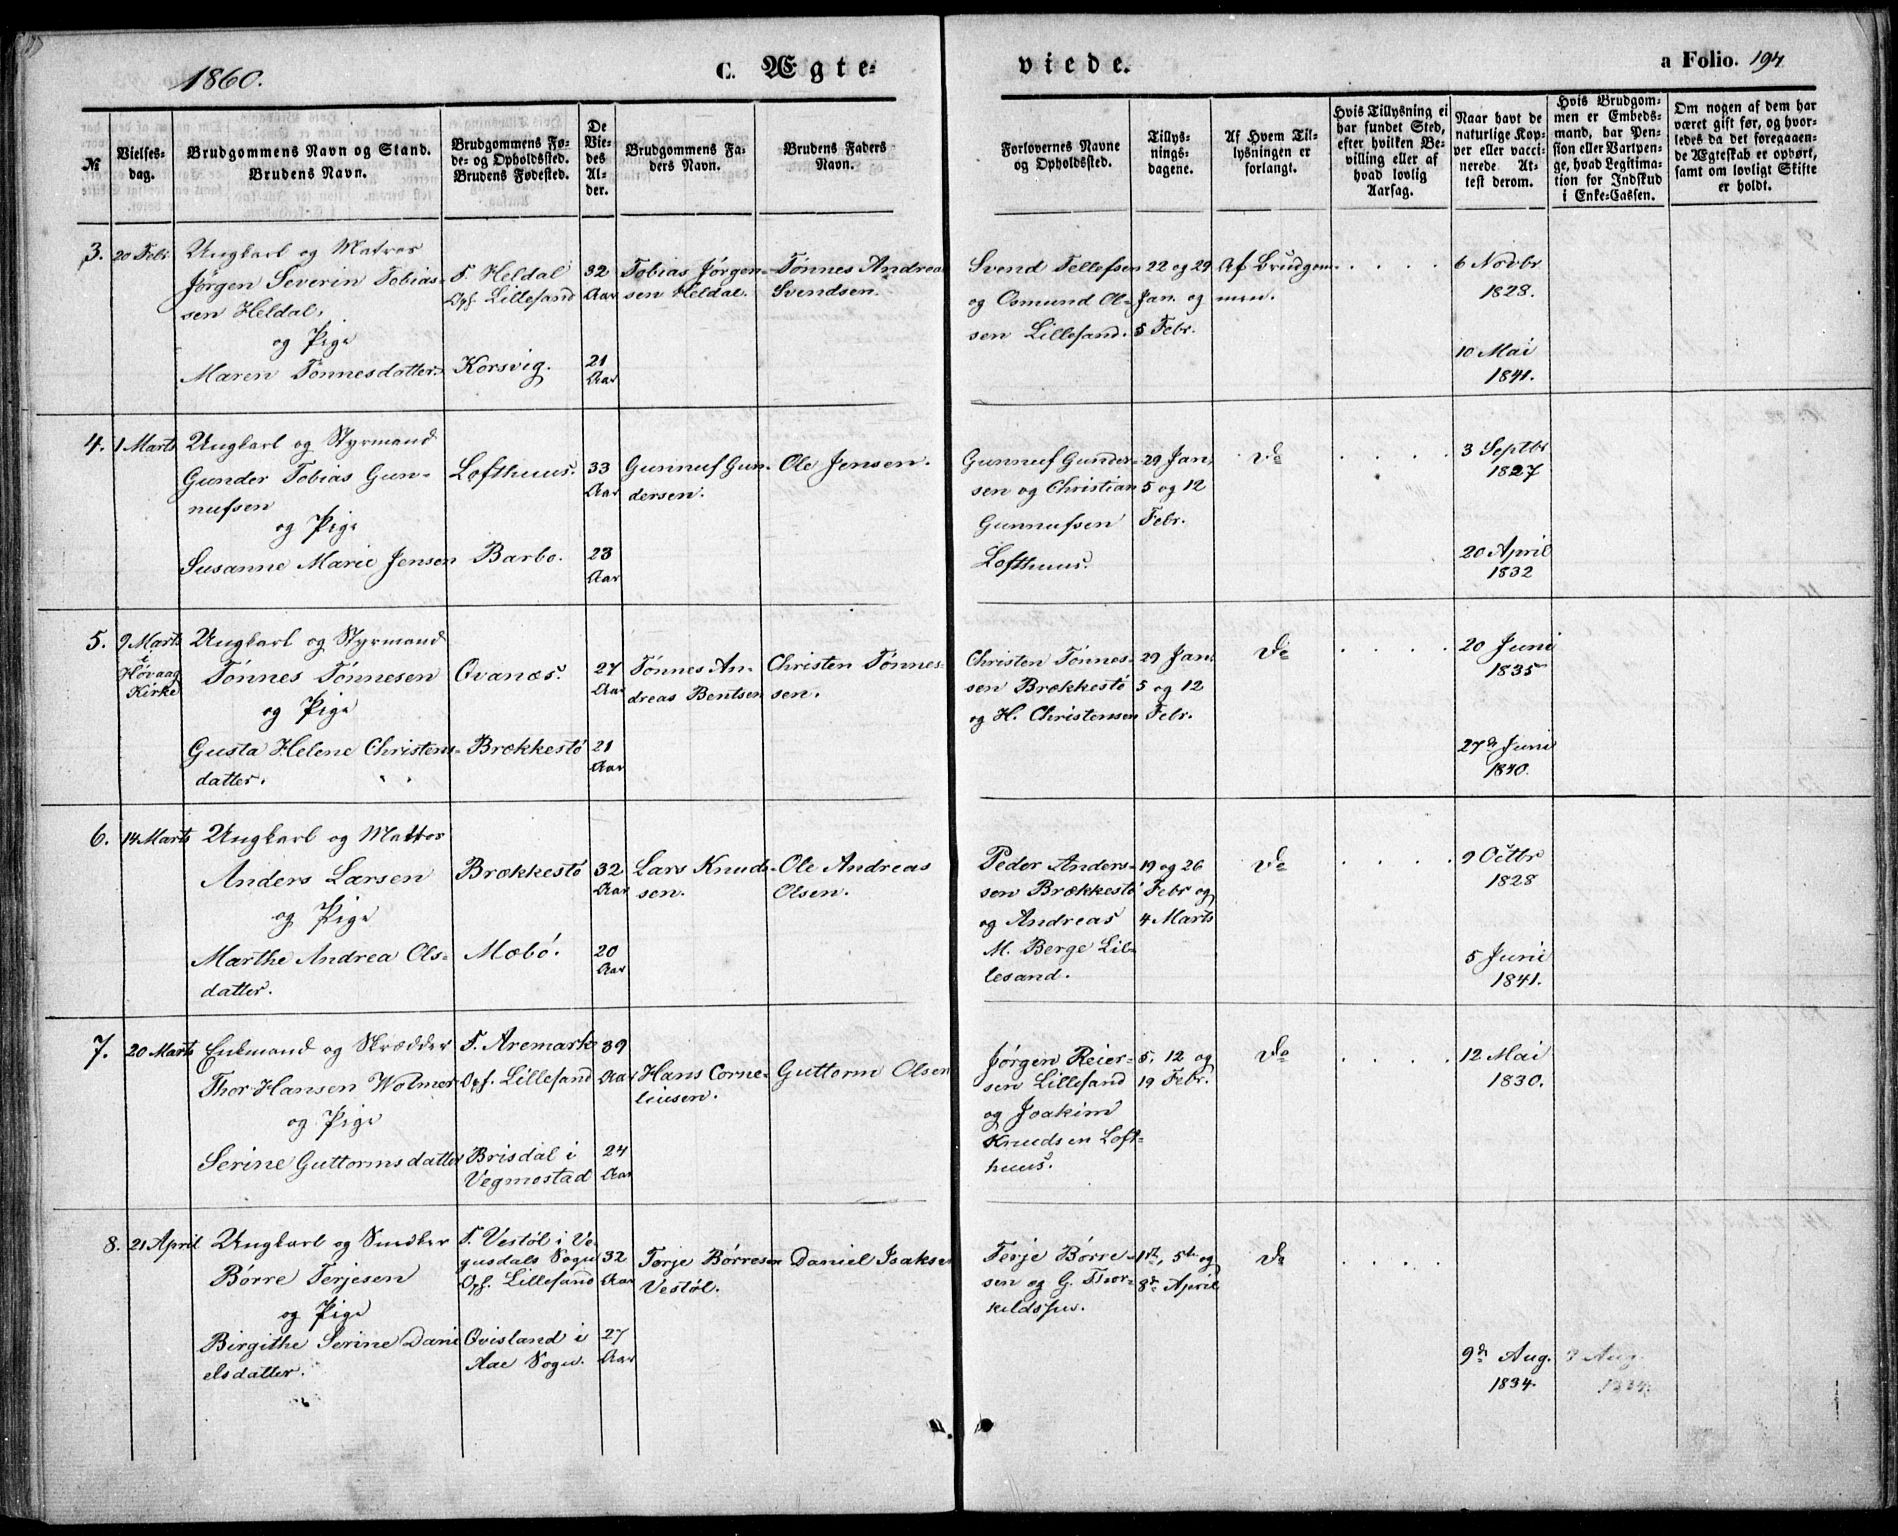 1860.
C. Ægte=
viede.
a Folio. 194
№
Vielses=
dag.
Brudgommens Navn og Stand.
Brudens Navn.
Brudgommens Fø=
de= og Opholdssted.
Brudens Fødested.
De
Vie=
des
Al=
der.
Brudgommens Fa=
ders Navn.
Brudens Faders
Navn.
Forlovernes Navne
og Opholdssted.
Tillys=
nings=
dagene.
Af Hvem Til=
lysningen er
forlangt.
Hvis Tillysning ei
har fundet Sted,
efter hvilken Be=
villing eller af
hvad lovlig
Aarsag.
Naar havt de
naturlige Kop=
per eller vacci=
nerede. At=
test derom.
Hvis Brudgom=
men er Embeds=
mand, har Pen=
sion eller Vartpen=
ge, hvad Legitima=
tion for Indskud
i Enke=Cassen.
Om nogen af dem har
været gift før, og hvor=
ledes da det foregaaen=
de Ægteskab er ophørt,
samt om lovligt Skifte
er holdt.
3.
20 Febr
Ungkarl og Matros
Jørgen Severin Tobias=
sen Heldal,
og Pige
Maren Tønnesdatter.
F. Heldal
Opf. Lillesand
Korsvig.
32
Aar
21
Aar
Tobias Jørgen=
sen Heldal.
Tønnes Andreas
Svendsen.
Svend Tellefsen
og Osmund Ol=
sen Lillesand.
22 og 29
Jan. og
5 Febr.
Af Brudgom=
men.
6 Novbr
1828.
10 Mai
1841.
4.
1 Marts
Ungkarl og Styrmand
Gunder Tobias Gun=
nufsen
og Pige
Susanne Marie Jensen
Lofthuus.
Barbo.
33
Aar
23
Aar
Gunnuf Gun=
dersen.
Ole Jensen.
Gunnuf Gunder=
sen og Christian
Gunnufsen
Lofthuus.
29 Jan,
5 og 12
Febr.
Do
3 Septbr
1827
20 April
1832
5.
9 Marts
i
Høvaag
Kirke
Ungkarl og Styrmand
Tønnes Tønnesen
og Pige
Gusta Helene Christens=
datter.
Qvanæs.
Brækkestø
27
Aar
21
Aar
Tønnes An=
dreas Bentsen
Christen Tønnes=
sen.
Christen Tønnes=
sen Brækkestø
og H. Christensen
29 Jan,
5 og 12
Febr.
Do
20 Juni
1835
27de Juni
1840.
6.
14 Marts
Ungkarl og Matros
Anders Larsen
og Pige
Marthe Andrea Ols=
datter.
Brækkestø
Mæbø.
32
Aar
20
Aar
Lars Knud=
sen.
Ole Andreas
Olsen.
Peder Anders=
sen Brækkestø
og Andreas
M. Berge Lil=
lesand.
19 og 26
Febr og
4 Marts
Do
9 Octbr
1828
5 Juni
1841.
7.
20 Marts
Enkmand og Skrædder
Thor Hansen Wolmer
og Pige
Serine Guttormsdatter
F. Aremark
Opf. Lillesand
Brisdal i
Vegmostad
39
Aar
24
Aar
Hans Corne=
liusen.
Guttorm Olsen
Jørgen Reier=
sen Lillesand
og Joakim
Knudsen Loft=
huus.
5, 12 og
19 Febr.
Do
12 Mai
1830.
8.
21 April
Ungkarl og Snedker
Børre Terjesen
og Pige
Birgithe Serine Dani
elsdatter.
F. Vestøl i Ve=
gusdals Sogn
Opf. Lillesand
Qvisland i
Aae Sogn.
32
Aar
27
Aar
Terje Børresen
Vestøl.
Daniel Isaksen
Terje Børre=
sen og G. Thor=
kildssen.
1ste, 5te og
8de April
Do
9de Aug.
1834.
9 Aug.
1834.